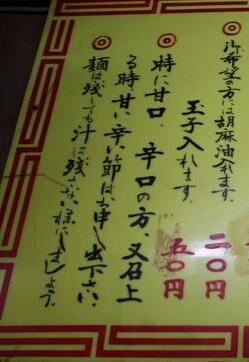 御希望の方には胡麻油入れます。
二〇円
玉子入れます。
五〇円
特に甘口、辛口の方、又召上
る時甘い、辛い節はお申し出下さい。
麺は残しても汁は残さない様にしましょう。